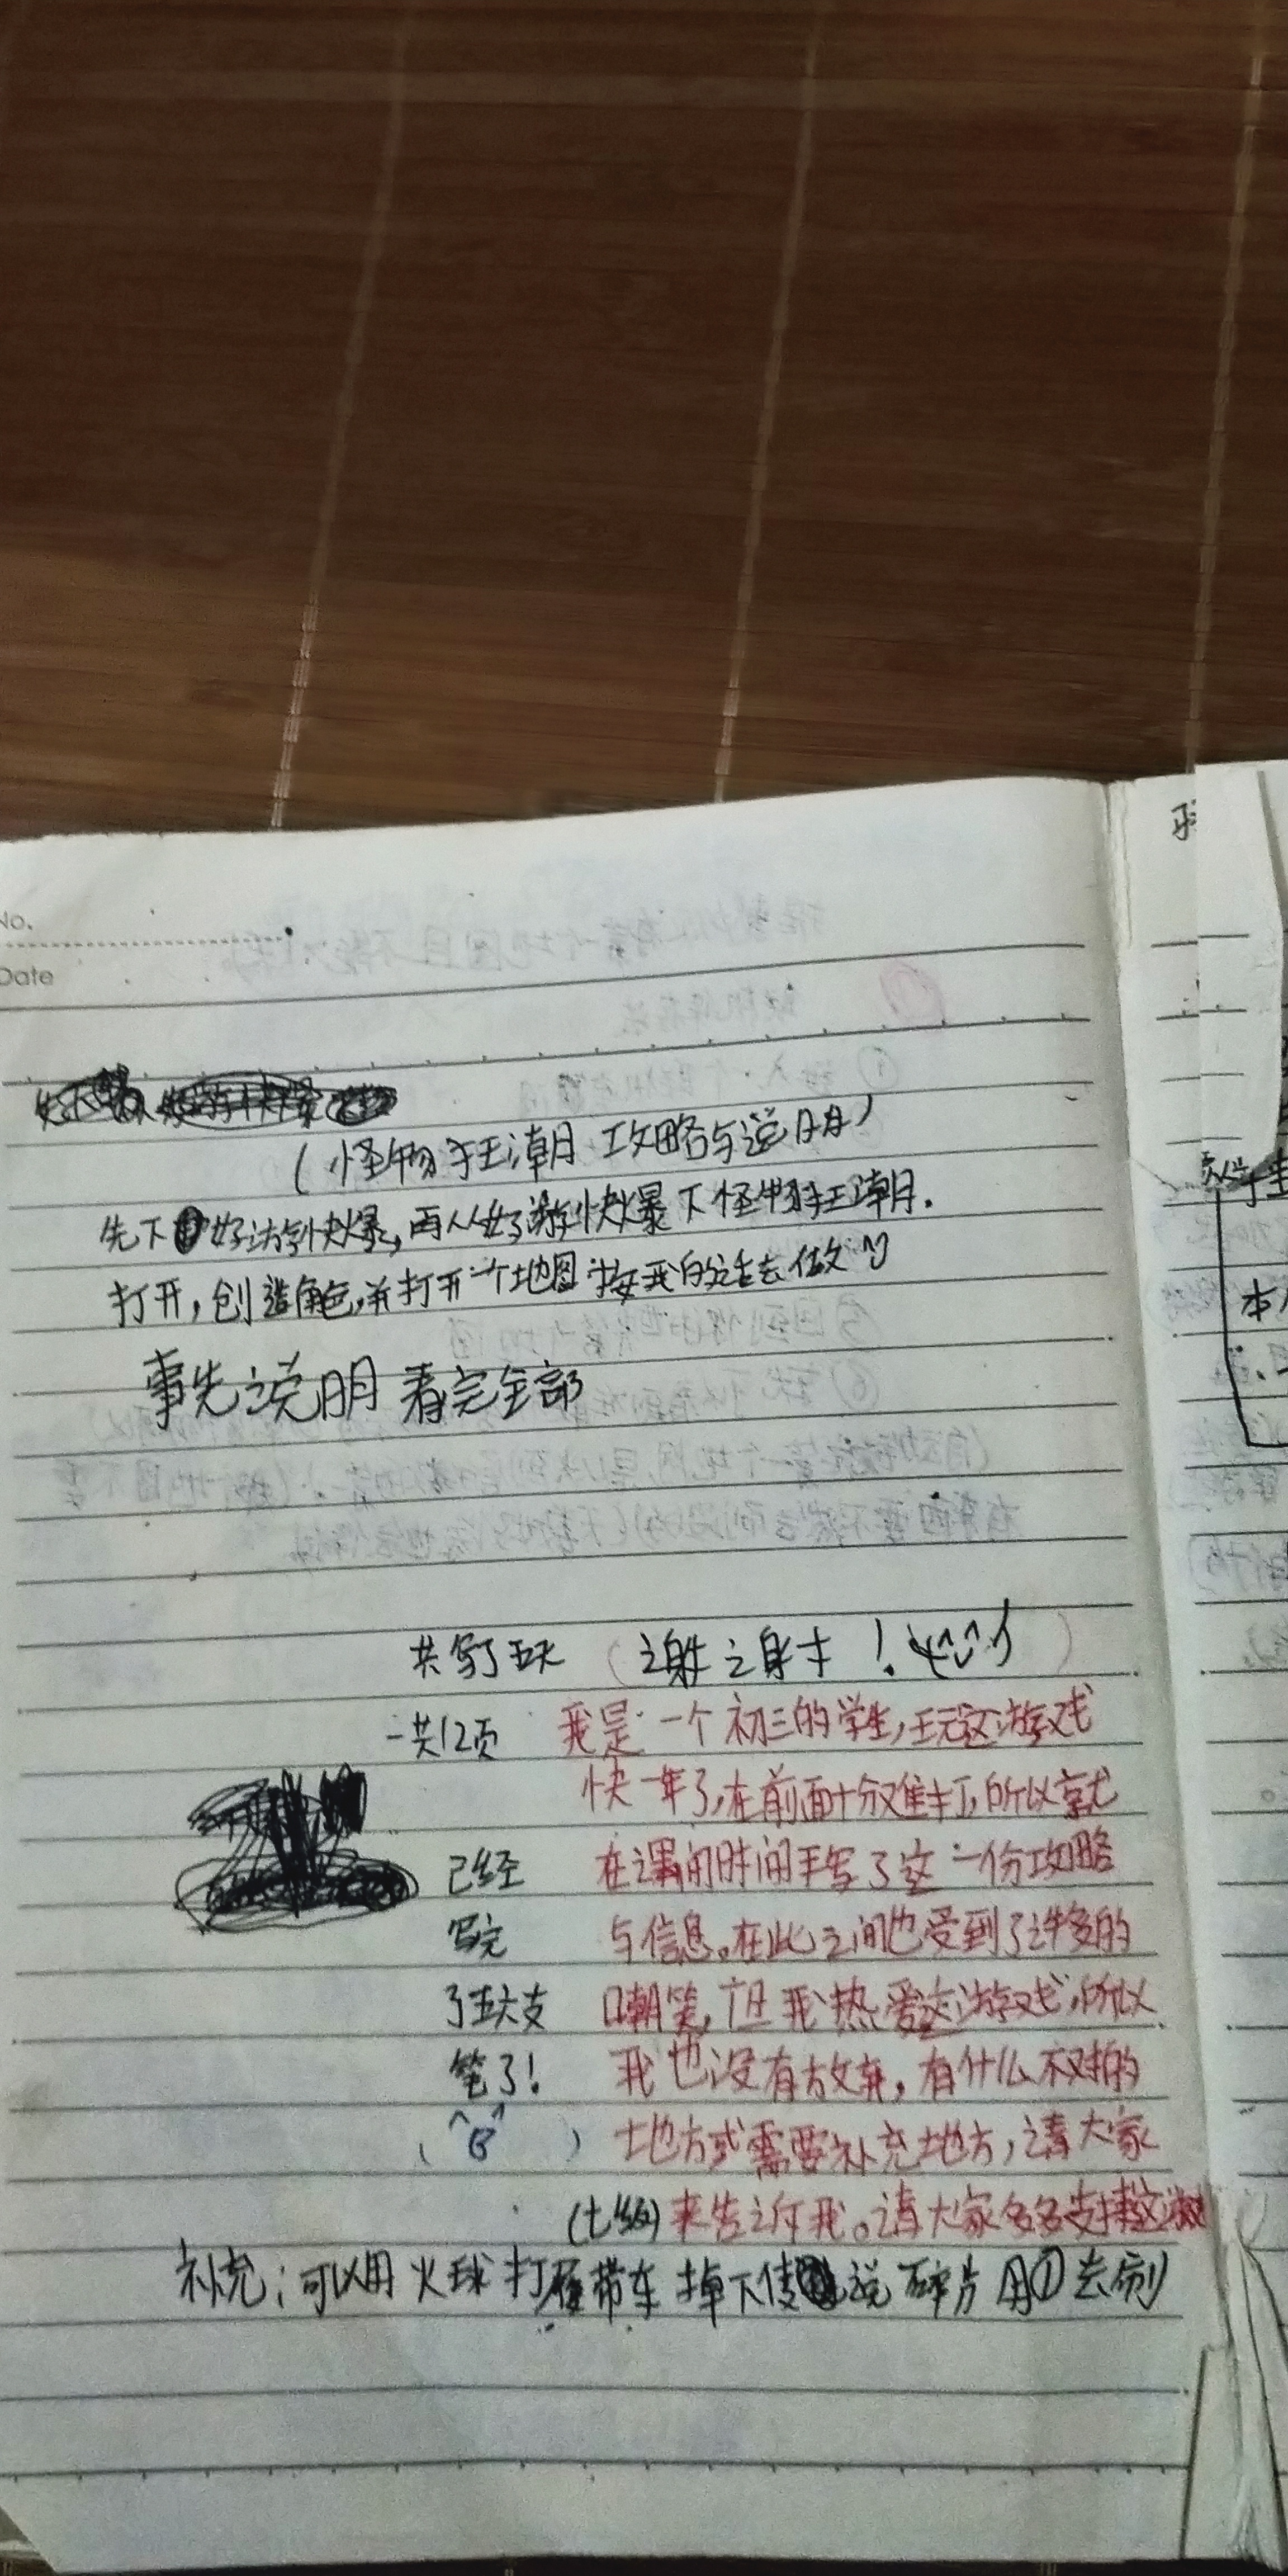 No.
Date
(怪物狂潮 攻略与说明)
先下好游快爆,再从好游快爆下怪物狂潮.
打开,创造角色,并打开一个地图 按我的话去做
事先说明 看完全部
共写了五天 (谢谢!
一共12页 我是一个初三的学生,玩这游戏
快一年了,在前面十分难打,所以就
已经 在课间时间手写了这一份攻略
写完 与信息。在此之间也受到了许多的
了五大支 嘲笑,但我热爱这游戏,所以
笔了! 我也没有放弃,有什么不对的
地方或需要补充地方,请大家
(七级) 来告之于我。请大家多多支持这游戏
补充:可以用火球打 带车 掉下传说碎片 用① 去刷